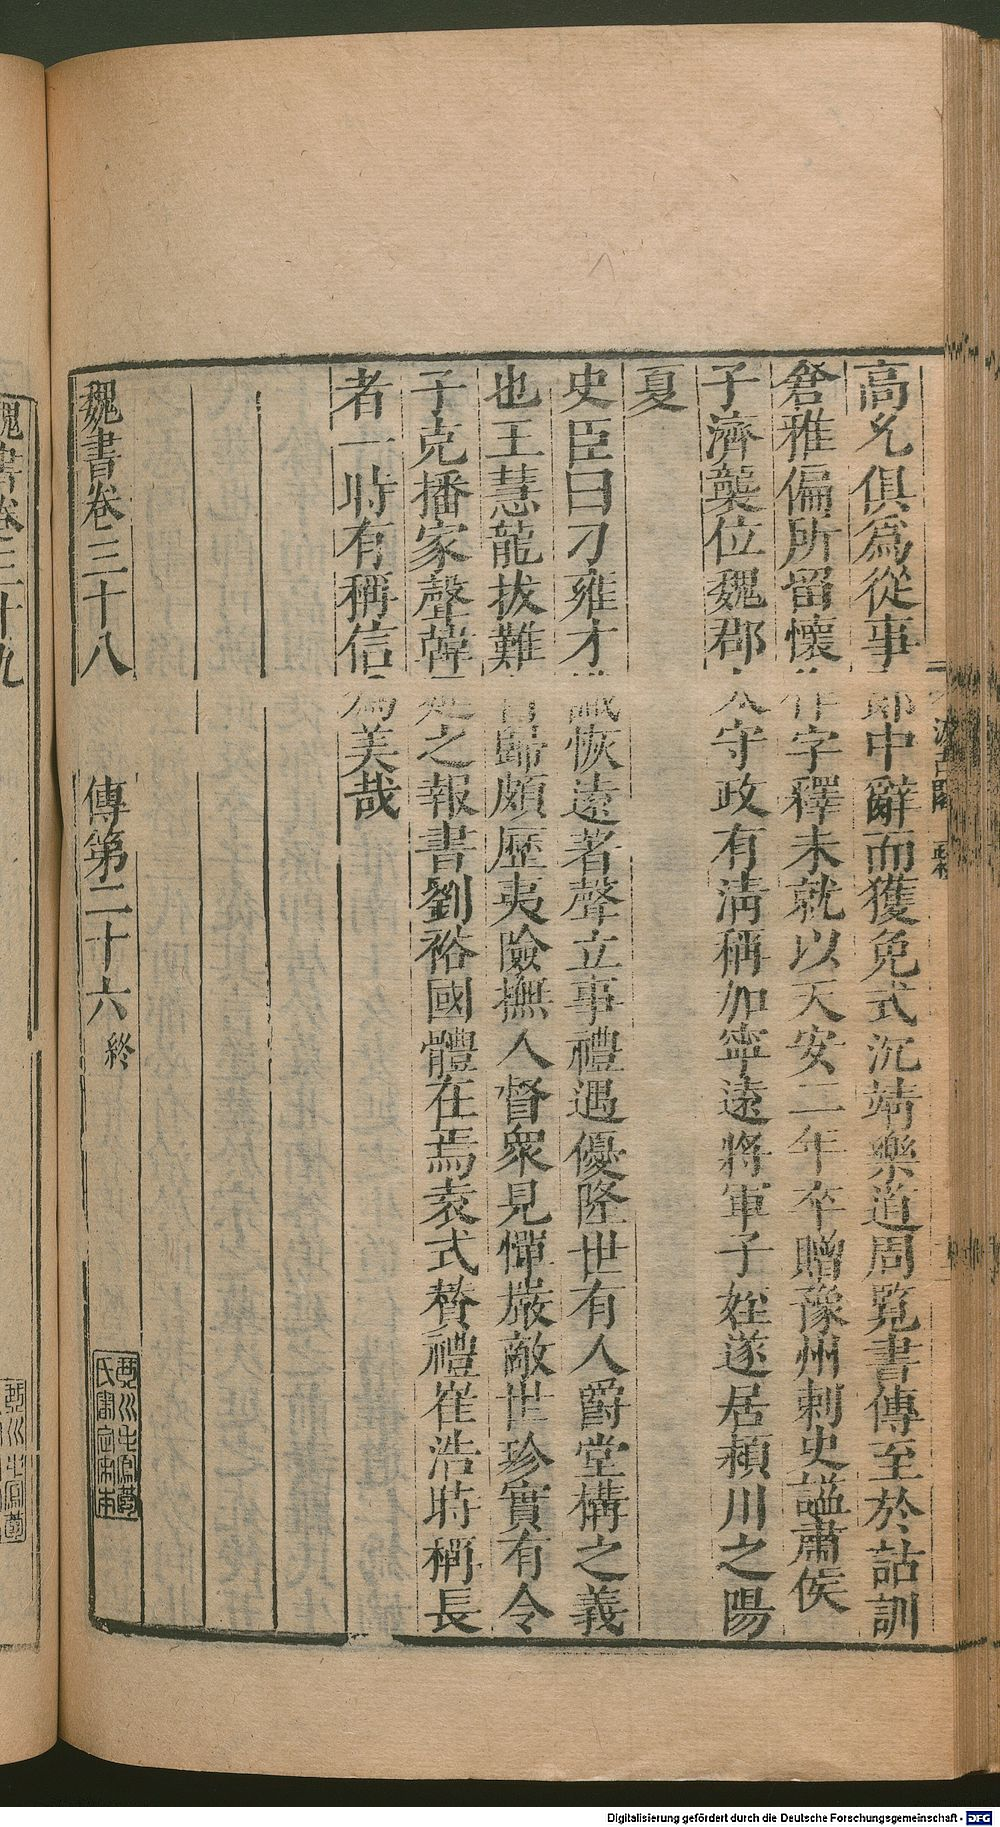 高允俱為從事郎中辭而獲免式沉靖樂道周覧書傳至於詁訓
倉雅偏所留懷作字釋未就以天安二年卒贈豫州刺史諡肅侯
子濟襲位魏郡太守政有清稱加寧遠將軍子姪遂居潁川之陽
夏
史臣曰刁雍才識恢遠著聲立事禮遇優隆世有人爵堂構之義
也王慧龍拔難歸頗歷夷險撫人督衆見憚嚴敵世珍實有令
子克播家聲韓延之報書劉裕國體在焉袁式贊禮崔浩時稱長
者一時有稱信為美哉
魏書卷三十八 傳第二十六 終
汲古閣
魏書卷三十九
Digitalisierung gefördert durch die Deutsche Forschungsgemeinschaft - DFG